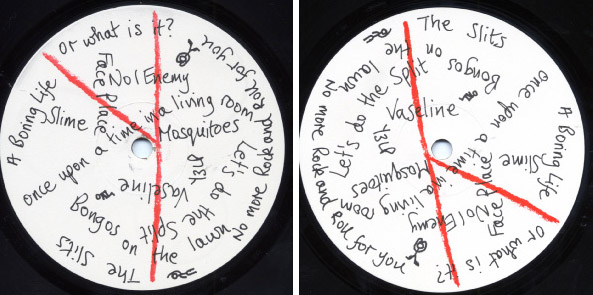 Or what is it?
Face Place
No1 Enemy
No more Rock and Roll for you
A Boring Life
Slime
once upon a time in a living room
Mosquitoes
Let's do the Split
Y3LP
Vaseline
Bongos on the lawn
The Slits
The Slits
Bongos on the lawn
Let's do the Split
Vaseline
Y3LP
once upon a time in a living room
Mosquitoes
A Boring Life
Slime
No1 Enemy
Or what is it?
No more Rock and Roll for you